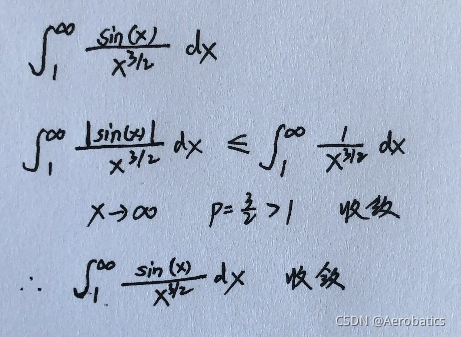 ∫₁^∞ sin(x)/x^{3/2} dx
∫₁^∞ |sin(x)|/x^{3/2} dx ≤ ∫₁^∞ 1/x^{3/2} dx
x→∞ p=3/2>1 收敛
∴ ∫₁^∞ sin(x)/x^{3/2} dx 收敛
CSDN @Aerobatics